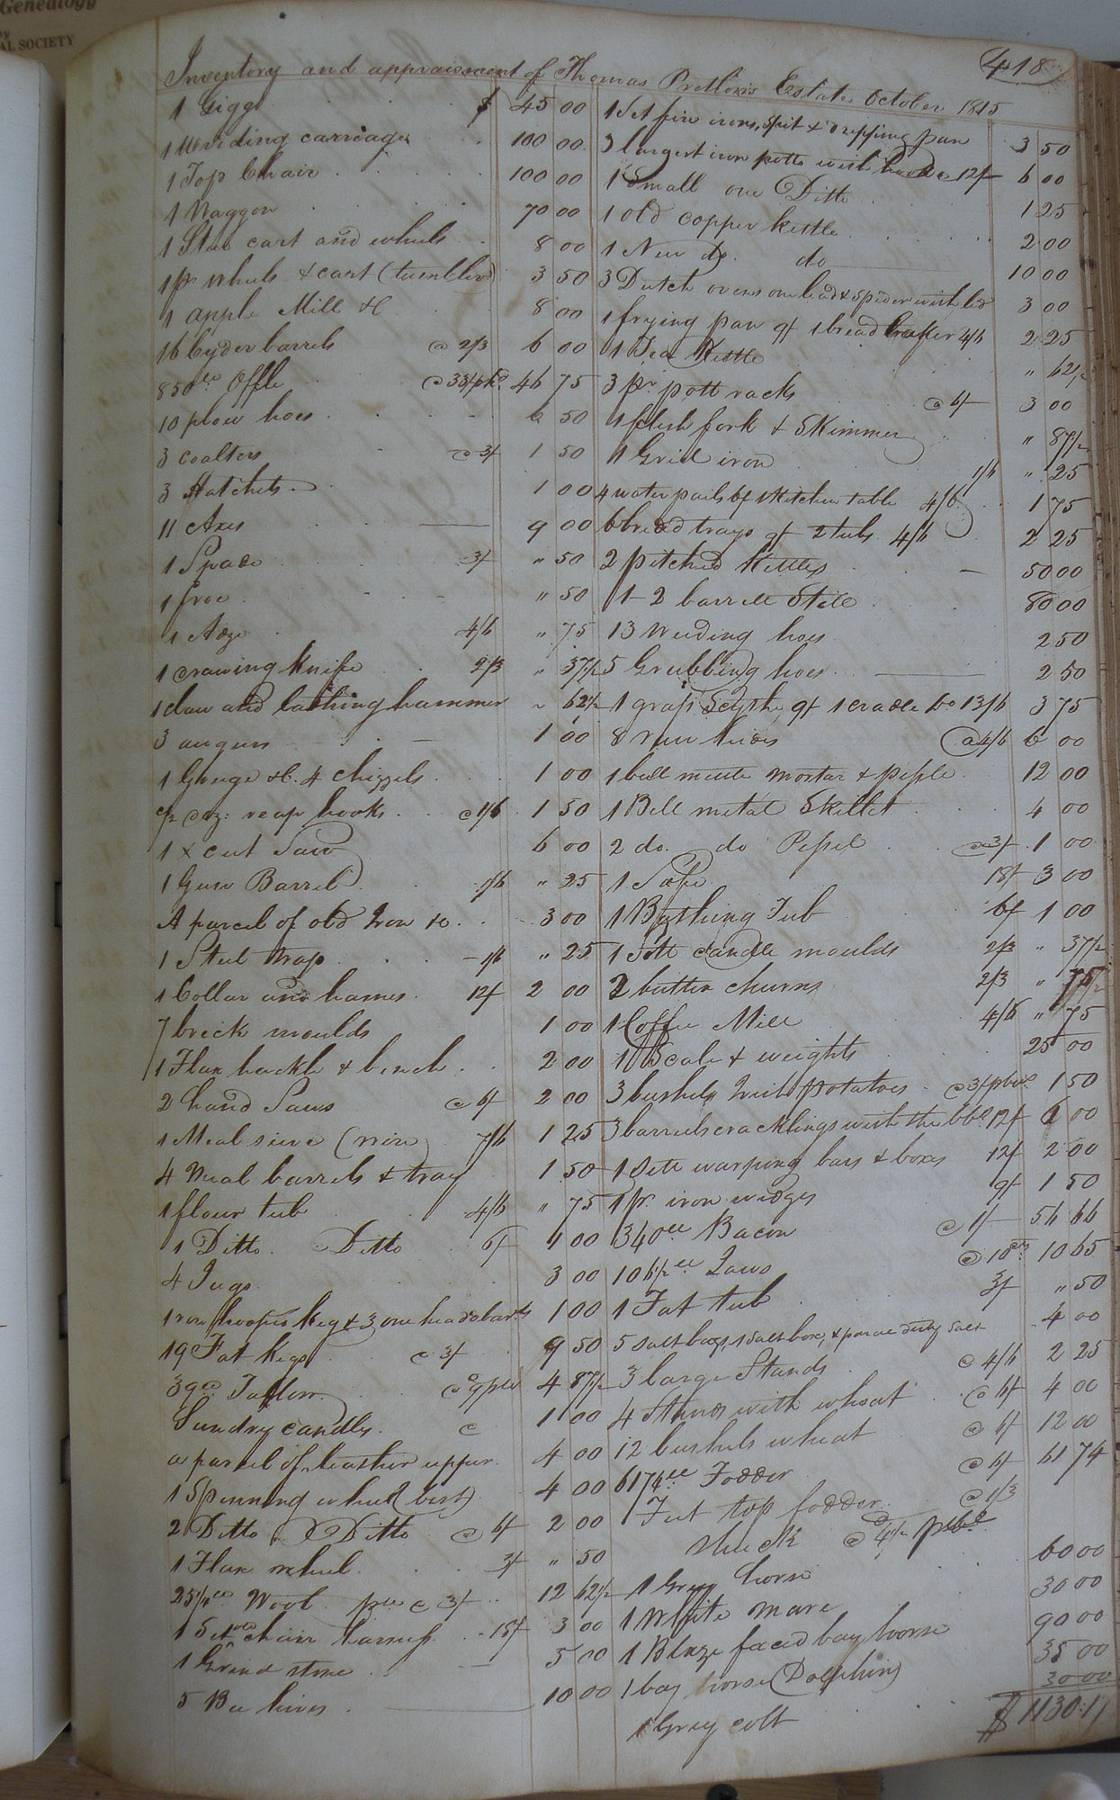 Genealogy
by
AL SOCIETY
418
Inventory and appraisement of Thomas Estate October 1815
1 Gigg $ 45 00
1 Wriding carriage 100 00
1 Top Chair 100 00
1 Waggon 70 00
1 cart and wheels 8 00
1 pr wheels & cart (tumbler) 3 50
1 apple Mill &c 8 00
16 Cyder barrels @ 2/3 6 00
850 Offle @ 33/ 46 75
10 plow hoes 2 50
3 coalters @ 3/ 1 50
3 Hatchets 1 00
11 Axes 9 00
1 Spade 3/ " 50
1 froe " 50
1 Adze 4/6 " 75
1 drawing knife 2/3 " 37½
1 claw and lathing hammer " 62½
3 augurs 1 00
1 Gouge &c. 4 chizzels 1 00
½ doz: reap hooks @ 1/6 1 50
1 x cut Saw 6 00
1 Gun Barrel 1/6 " 25
A parcel of old Iron &c 3 00
1 Steel trap 1/6 " 25
1 Collar and hames 12/ 2 00
7 brick moulds 1 00
1 Flax hackle & bench 2 00
2 hand Saws @ 6/ 2 00
1 Meal sieve (wire) 7/6 1 25
4 Meal barrels & tray 1 50
1 flour tub 4/6 " 75
1 Ditto Ditto 6/ 1 00
4 Jugs 3 00
1 iron hooped keg & 3 one head barls 1 00
19 Fat kegs @ 3/ 9 50
39 Tallow @ 9 4 87½
Sundry candles @ 1 00
a parcel of leather upper 4 00
1 Spinning wheel (best) 4 00
2 Ditto Ditto @ 6/ 2 00
1 Flax wheel 3/ " 50
25¼ Wool @ 3/ 12 62½
1 Set chair harness 18/ 3 00
1 Grind stone 5 00
5 Bee hives 10 00
1 Set fire irons, spit & dripping pan 3 50
3 largest iron potts with hooks 12/ 6 00
1 Small one Ditto 1 25
1 old copper kettle 2 00
1 New do. do 10 00
3 Dutch ovens one lead & spider with lid 3 00
1 frying pan 9/ 1 bread 4/6 2 25
1 Tea Kettle " 62½
3 pr pott racks @ 6/ 3 00
1 flesh fork & Skimmer " 87½
1 Grid iron 1/6 " 25
4 water pails 6/ 1 kitchen table 4/6 1 75
6 bread trays 9/ 2 tubs 4/6 2 25
2 pitched Kettles 50 00
1-2 barrell Still 80 00
13 Weeding hoes 2 50
5 Grubbing hoes 2 50
1 grass Scythe 9/ 1 cradle do 13/6 3 75
8 raw hides @ 4/6 6 00
1 bell mettle mortar & pestle 12 00
1 Bell metal Skillet 4 00
2 do. do Pestl @ 3/ 1 00
1 Safe 18/ 3 00
1 Bathing Tub 6/ 1 00
1 Sett candle moulds 2/3 " 37½
2 butter churns 2/3 " 75
1 Coffee Mill 4/6 " 75
1 Scale & weights 25 00
3 bushels Irish potatoes @ 3/ 1 50
3 barrels cracklings with the bbl 12/ 6 00
1 Sett warping bars & boxes 12/ 2 00
1 pr. iron wedges 9/ 1 50
340 Bacon @ 1/ 56 66
106½ Lard @ 10 65
1 Fat tub 3/ " 50
5 salt bags, 1 salt box, & parcel dirty Salt 4 00
3 large Stands @ 4/6 2 25
4 Stands with wheat @ 6/ 4 00
12 bushels wheat @ 6/ 12 00
6174 Fodder @ 6/ 61 74
Feet top fodder @ 1/3
Shuck @
1 Grey horse 60 00
1 White mare 30 00
1 Blaze faced bay horse 90 00
1 bay horse (Dolphin) 35 00
1 Grey colt 30 00
$ 1130.11